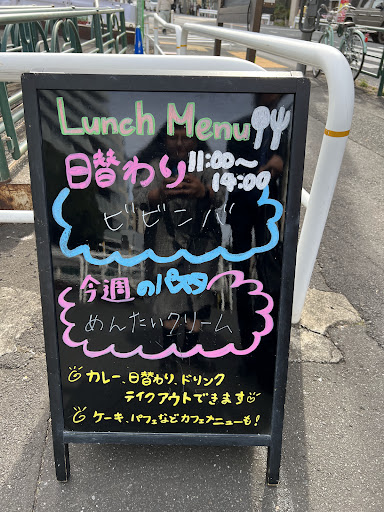 Lunch Menu
日替わり 11:00～
14:00
ビビンバ
今週のパスタ
めんたいクリーム
カレー、日替わり、ドリンク
テイクアウトできます
ケーキ、パフェなどカフェメニューも!